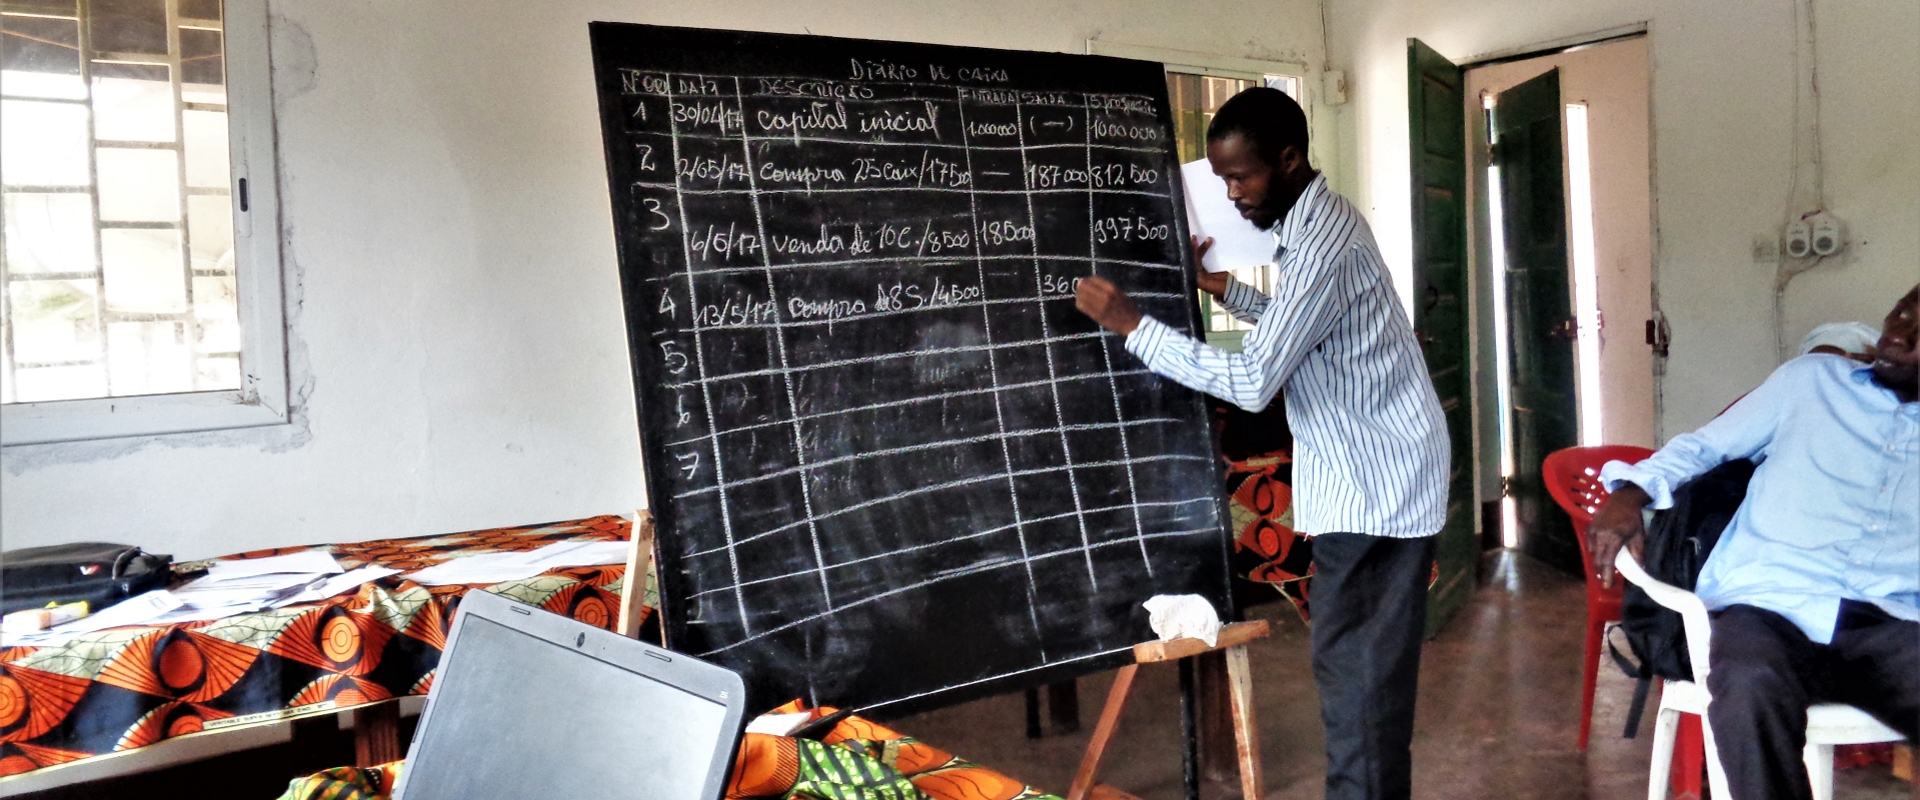 DIÁRIO DE CAIXA
Nº ORD DATA DESCRIÇÃO ENTRADA SAIDA
1 30/04/17 capital inicial 1.000000 (—) 1000 000
2 2/05/17 compra 25 caix/17500 — 187000 812 500
3 6/5/17 venda de 10 C./8500 18500 997 500
4 13/5/17 compra de 8 S./4500 — 360
5
6
7